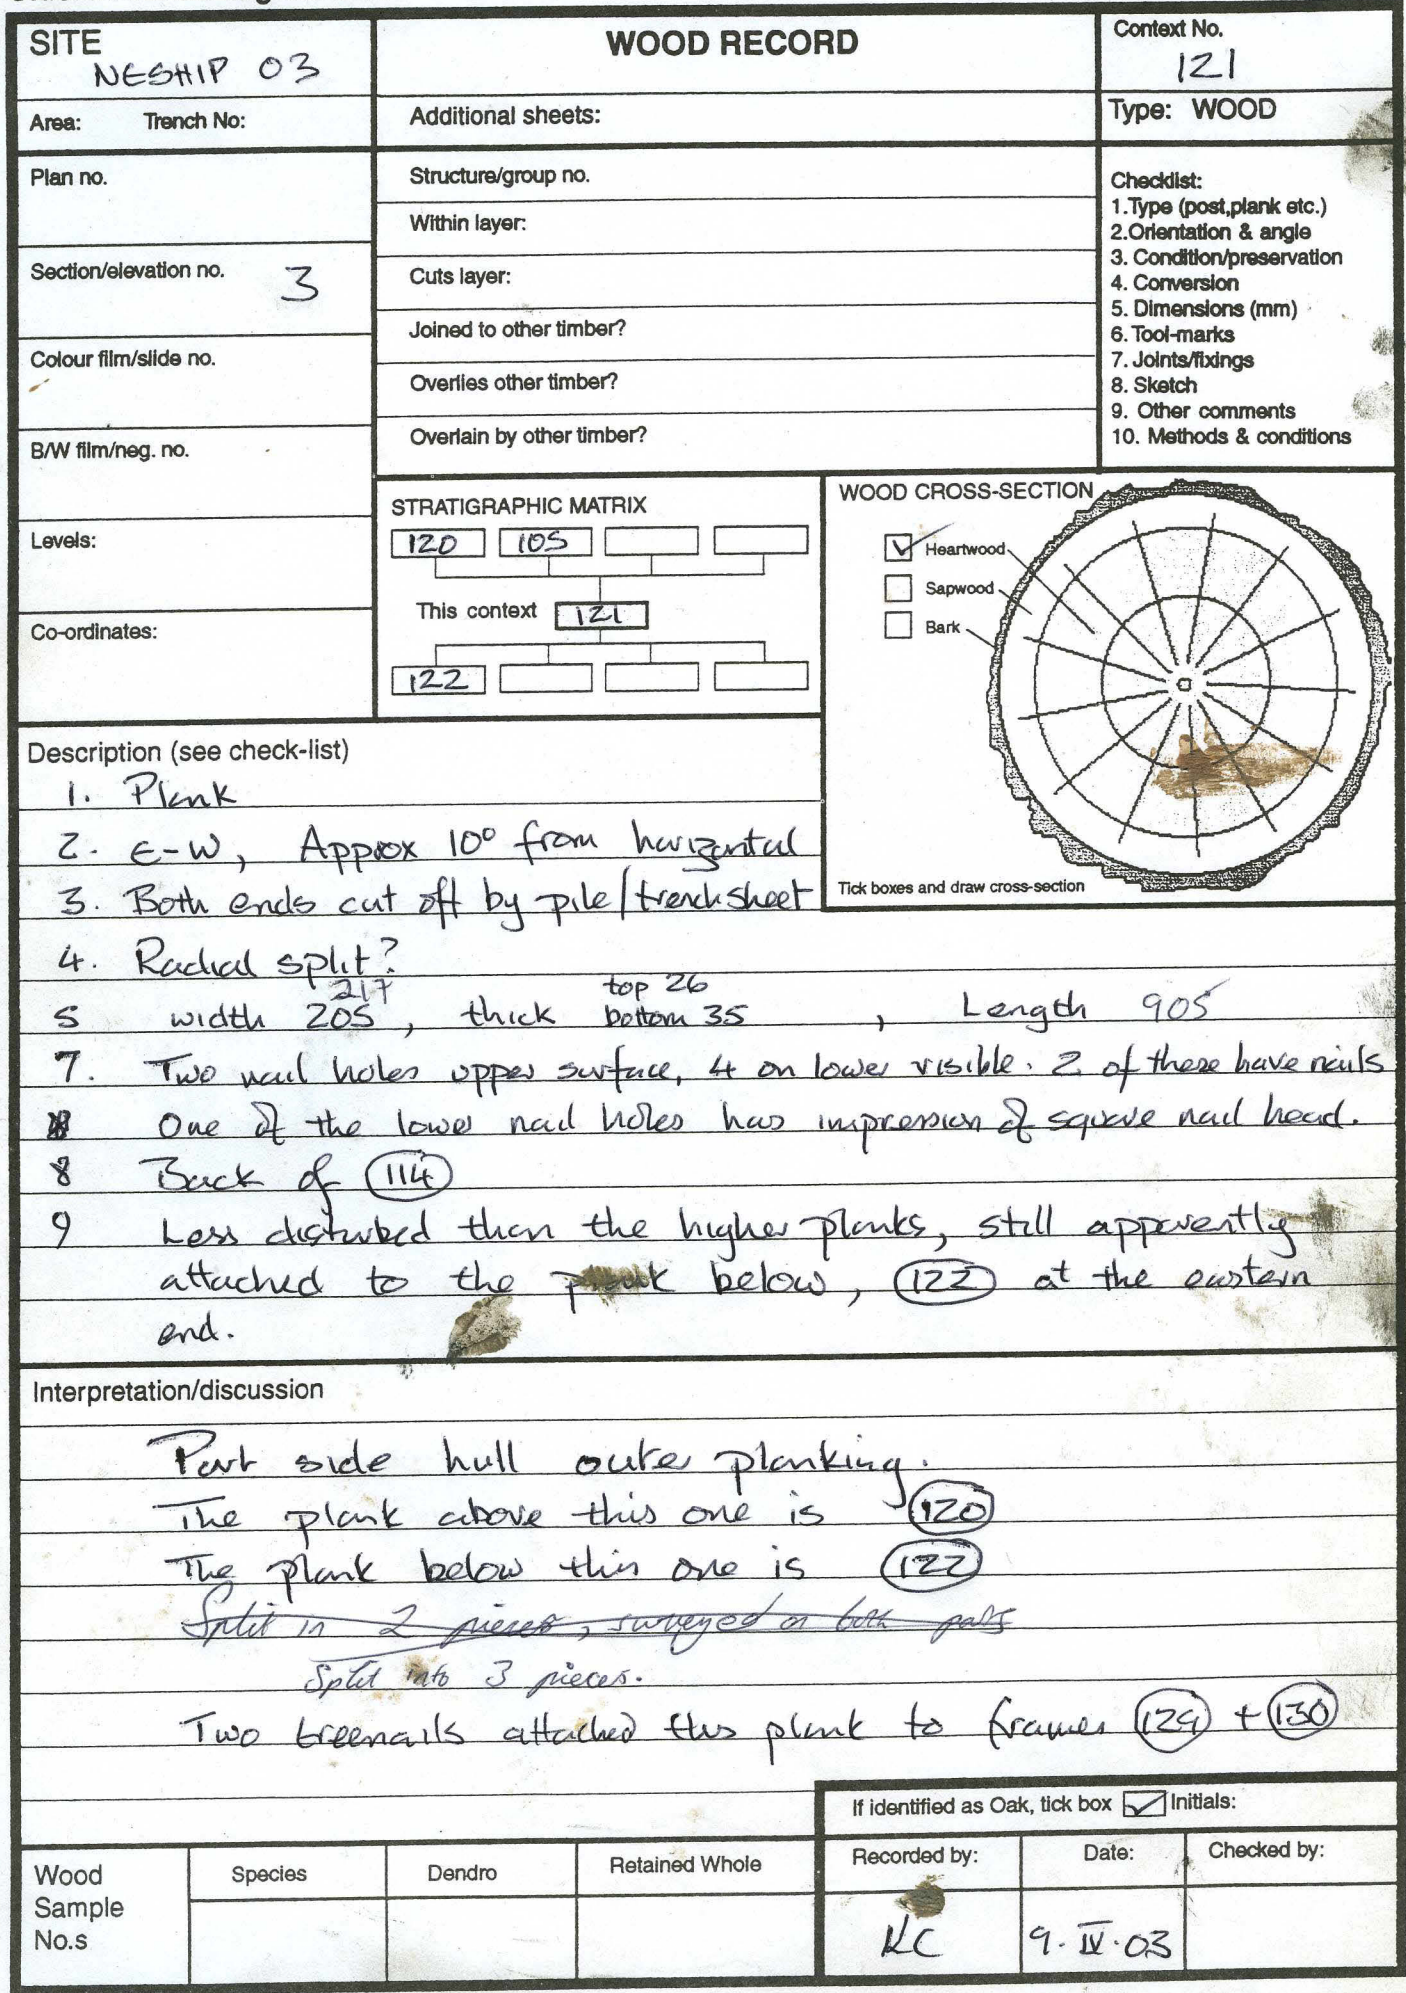 SITE
NESHIP 03
WOOD RECORD
Context No.
121
Area: Trench No:
Additional sheets:
Type: WOOD
Plan no.
Structure/group no.
Within layer:
Section/elevation no. 3
Cuts layer:
Joined to other timber?
Colour film/slide no.
Overlies other timber?
B/W film/neg. no.
Overlain by other timber?
Checklist:
1.Type (post,plank etc.)
2.Orientation & angle
3. Condition/preservation
4. Conversion
5. Dimensions (mm)
6. Tool-marks
7. Joints/fixings
8. Sketch
9. Other comments
10. Methods & conditions
Levels:
Co-ordinates:
STRATIGRAPHIC MATRIX
120 105
This context 121
122
WOOD CROSS-SECTION
Heartwood
Sapwood
Bark
Tick boxes and draw cross-section
Description (see check-list)
1. Plank
2. E-W, Approx 10° from horizontal
3. Both ends cut off by pile/trench sheet
4. Radial split?
217 top 26
5 width 205, thick bottom 35, Length 905
7. Two nail holes upper surface, 4 on lower visible. 2 of these have nails
One of the lower nail holes has impression of square nail head.
8 Back of 114
9 Less disturbed than the higher planks, still apparently
attached to the plank below, 122 at the eastern
end.
Interpretation/discussion
Port side hull outer planking.
The plank above this one is 120
The plank below this one is 122
Split in 2 pieces, surveyed on both parts
Split into 3 pieces.
Two treenails attached this plank to frames 129 + 130
If identified as Oak, tick box Initials:
Wood
Sample
No.s
Species
Dendro
Retained Whole
Recorded by:
KC
Date:
9.IV.03
Checked by: